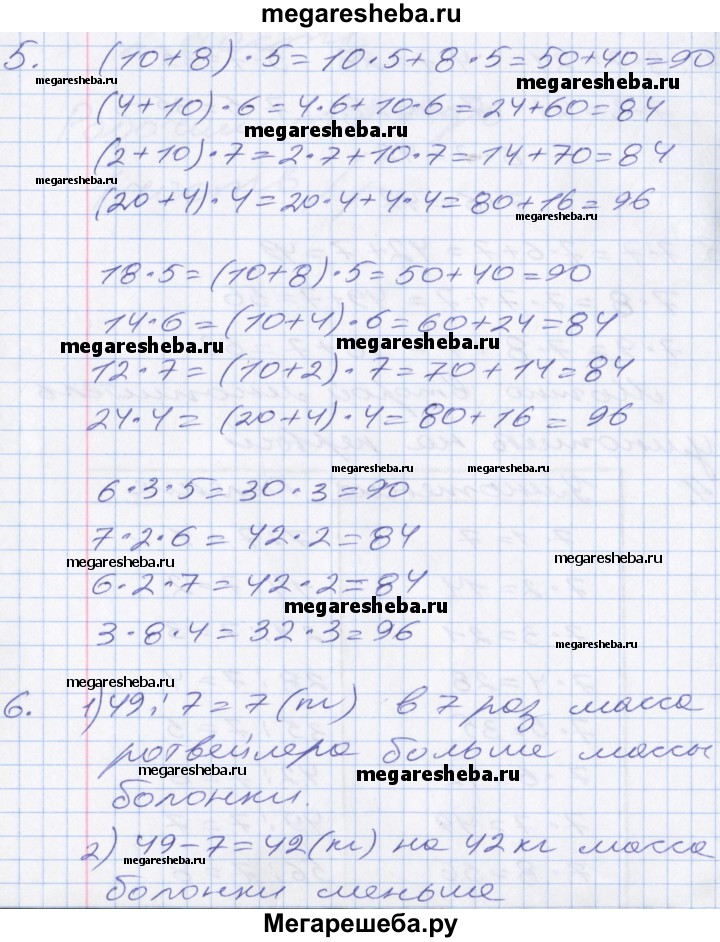 megaresheba.ru
5. (10+8)·5=10·5+8·5=50+40=90
megaresheba.ru megaresheba.ru
(4+10)·6=4·6+10·6=24+60=84
megaresheba.ru
(2+10)·7=2·7+10·7=14+70=84
megaresheba.ru
(20+4)·4=20·4+4·4=80+16=96
megaresheba.ru
18·5=(10+8)·5=50+40=90
14·6=(10+4)·6=60+24=84
megaresheba.ru megaresheba.ru
12·7=(10+2)·7=70+14=84
24·4=(20+4)·4=80+16=96
megaresheba.ru megaresheba.ru
6·3·5=30·3=90
7·2·6=42·2=84
megaresheba.ru megaresheba.ru
6·2·7=42·2=84
megaresheba.ru
3·8·4=32·3=96
megaresheba.ru
6. 1) 49:7=7(т) в 7 раз масса
ротвейлера больше массы
megaresheba.ru megaresheba.ru
болонки.
2) 49-7=42(кг) на 42 кг масса
megaresheba.ru
болонки меньше
Мегарешеба.ру